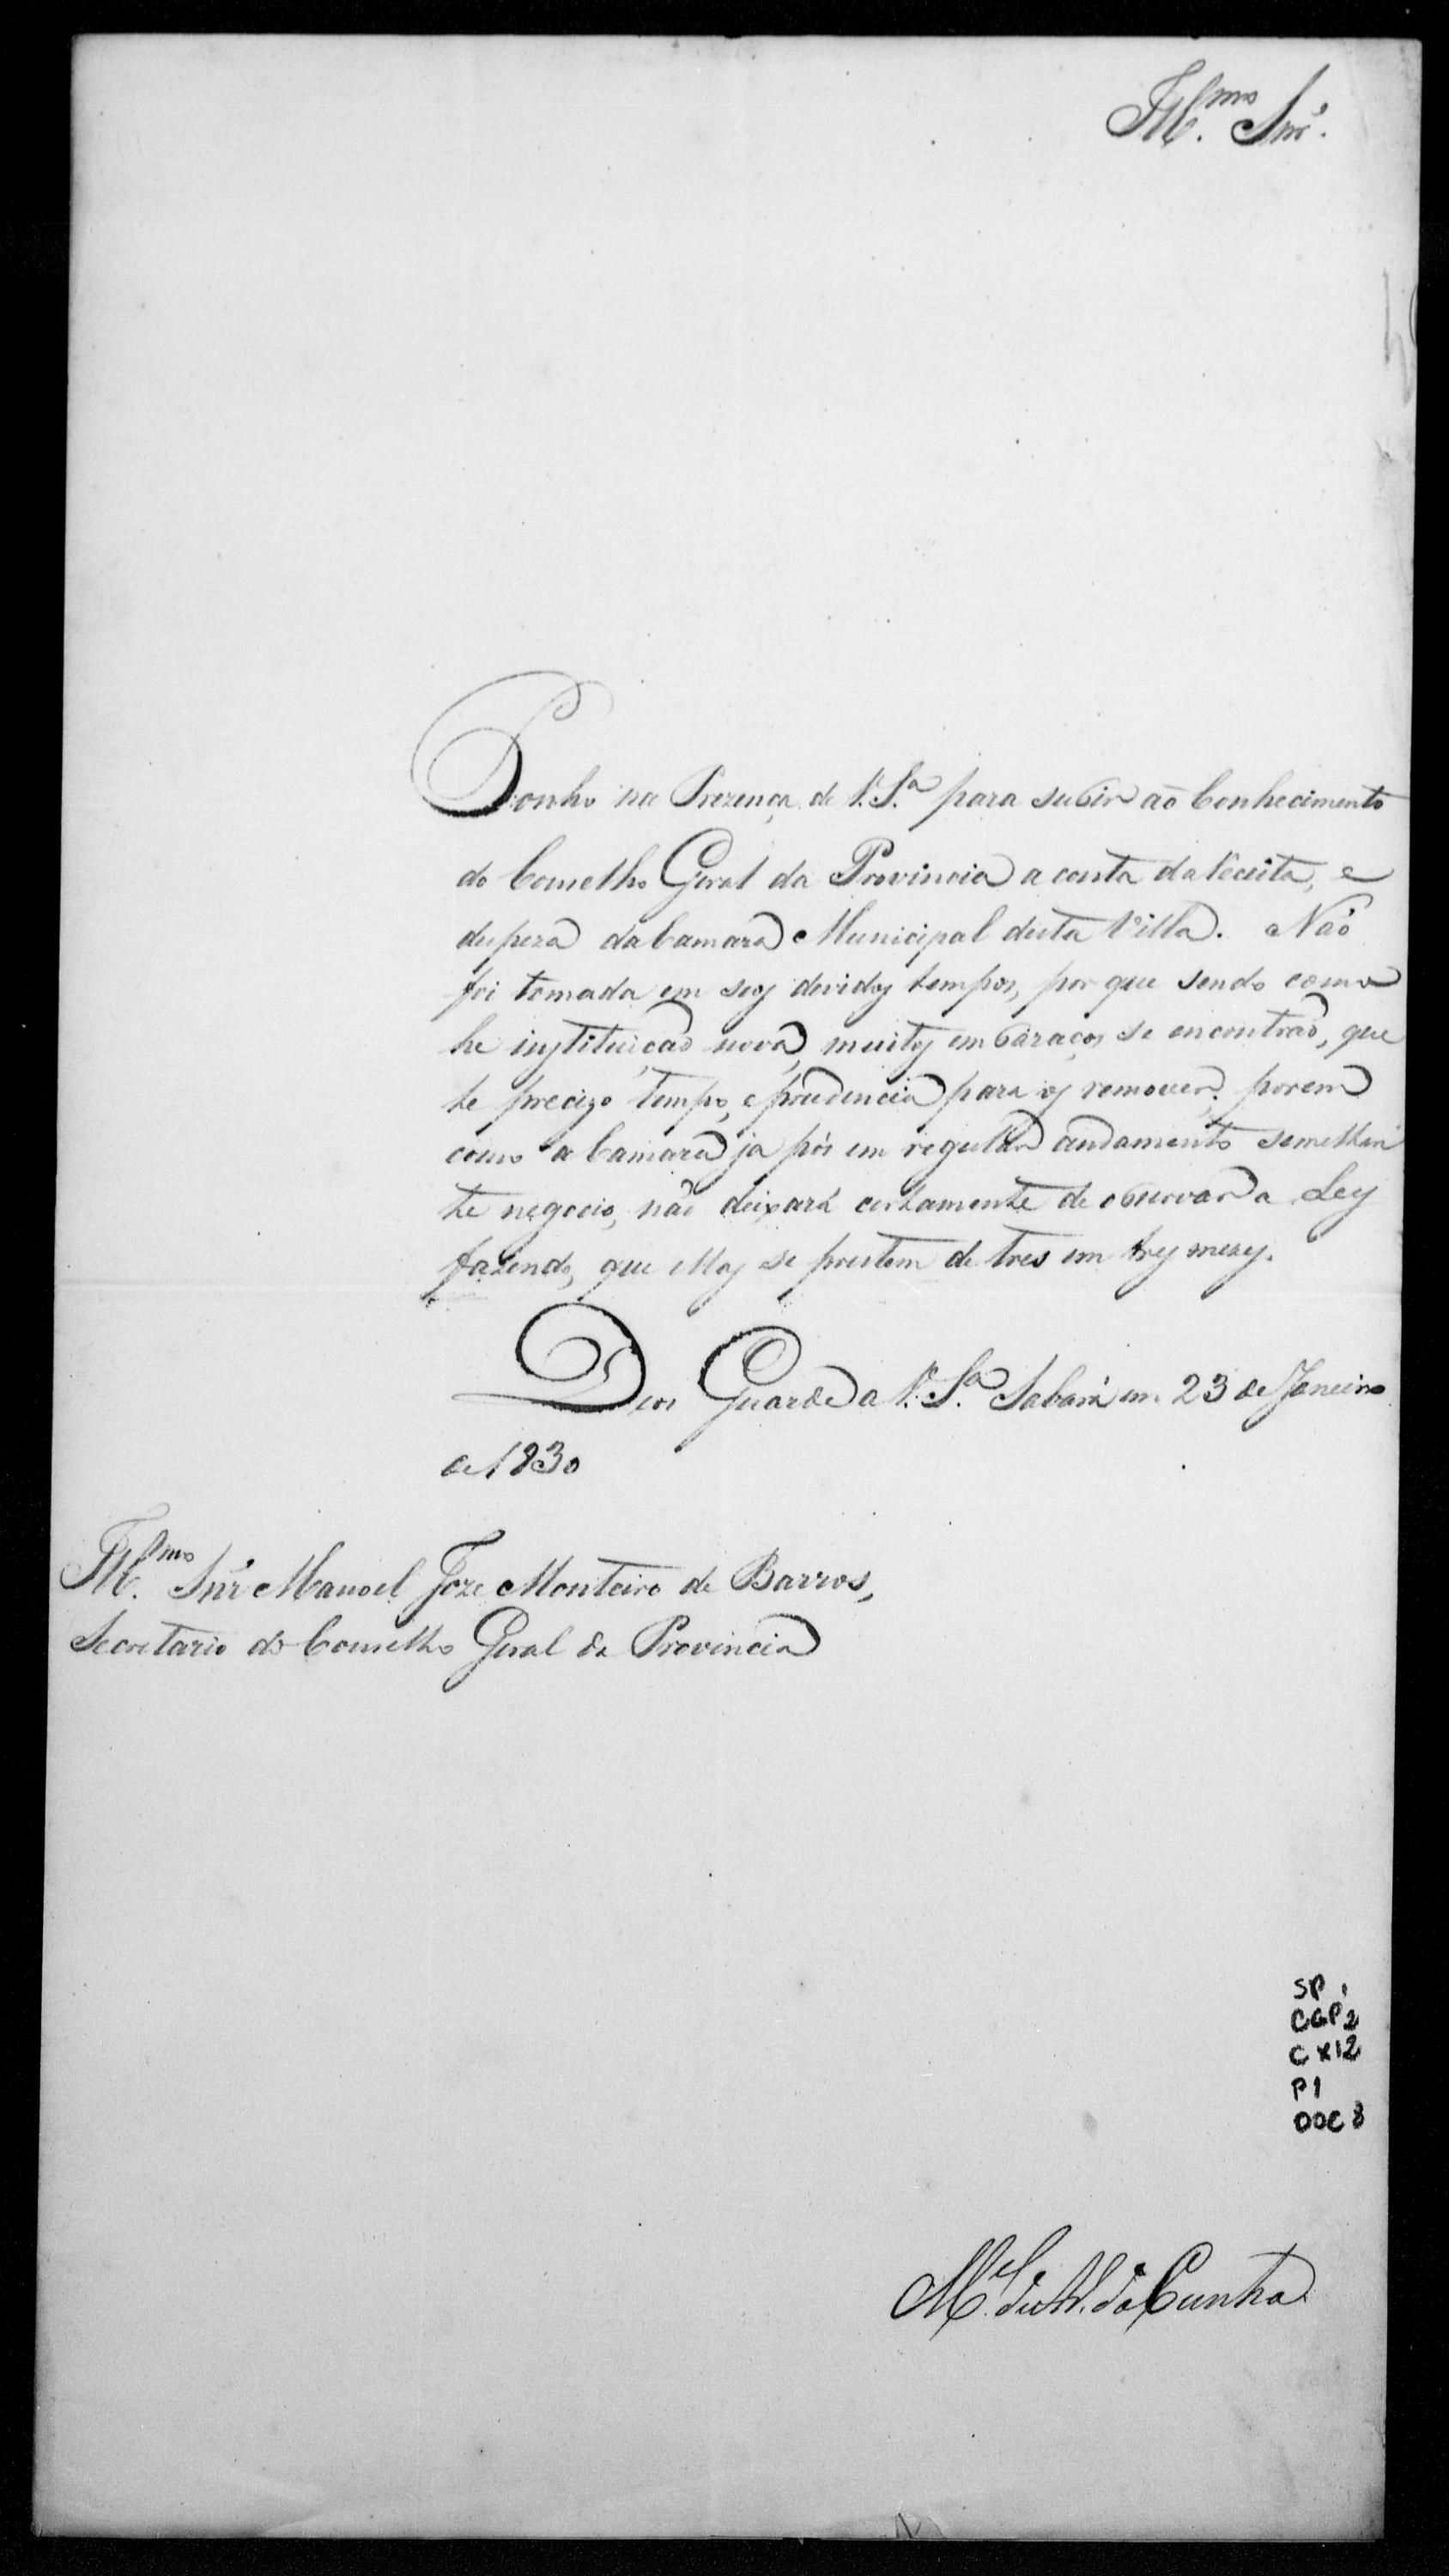 Ill.mo Snr.
Ponho na Prezença de V. S.a para subir aó Conhecimento
do Conselho Geral da Provincia a conta da receita, e
despeza da Camara Municipal desta Villa. Não
foi tomada em seos devidos tempos, por que sendo como
he instituição nova, muitos embaraços se encontrão, que
he precizo tempo, e prudencia para os remover: porem
como a Camara ja pôs em regular andamento semelhan
te negocio, não deixará certamente de observar a Ley
fazendo, que ellas se prestem de tres em tres mezes.
Deos Guarde a V. S.a Sabará em 23 de Janeiro
de 1830
Ill.mo Snr Manoel Joze Monteiro de Barros,
Secretario do Conselho Geral da Provincia
SP 1
CGP 2
CX12
P1
DOC 8
M.el da Cunha